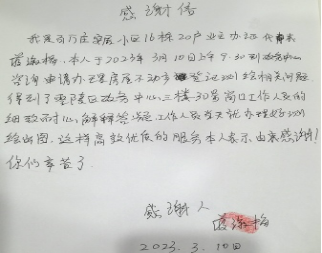 感谢信
我是百万庄家属小区16栋20户业主办证代表
本人于2023年3月10日上午9:30到政务中心
咨询申请办理家属房不动产登记证测绘相关问题
得到了零陵区政务中心三楼30号岗口工作人员的
细致耐心解释答疑工作人员当天就办理好测
绘出图.这样高效优质的服务本人表示由衷感谢!
你们辛苦了
感谢人
2023.3.10日